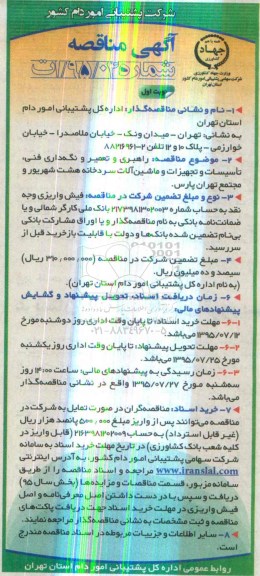 شرکت پشتیبانی امور دام کشور
آگهی مناقصه
شماره ۹۵/۰۲۵/ات
نوبت اول
جهاد
وزارت جهاد کشاورزی
شرکت سهامی پشتیبانی امور دام کشور
استان تهران
۱- نام و نشانی مناقصه‌گذار: اداره کل پشتیبانی امور دام
استان تهران
به نشانی: تهران - میدان ونک - خیابان ملاصدرا - خیابان
خوارزمی - پلاک ۱۰ و ۱۲ تلفن
۲- موضوع مناقصه: راهبری و تعمیر و نگه‌داری فنی،
تأسیسات و تجهیزات و ماشین‌آلات سردخانه هشت شهریور و
مجتمع تهران پارس.
۳- نوع و مبلغ تضمین شرکت در مناقصه: فیش واریزی وجه
نقد به حساب شماره بانک ملی کارگر شمالی و یا
ضمانت‌نامه بانکی به نام مناقصه‌گذار و یا اوراق مشارکت بانکی
بی‌نام تضمین شده بانک‌ها و دولت با قابلیت بازخرید قبل از
سررسید.
۴- مبلغ تضمین شرکت در مناقصه: (۳۱۰,۰۰۰,۰۰۰ ریال)
سیصد و ده میلیون ریال.
(به نام اداره کل پشتیبانی امور دام استان تهران).
۶- زمان دریافت اسناد، تحویل پیشنهاد و گشایش
پیشنهادهای مالی:
۱-۶- مهلت خرید اسناد: تا پایان وقت اداری روز دوشنبه مورخ
۱۳۹۵/۰۷/۱۲ می‌باشد.
۲-۶- مهلت تحویل پیشنهاد: تا پایان وقت اداری روز یکشنبه
مورخ ۱۳۹۵/۰۷/۲۵ می‌باشد.
۳-۶- زمان رسیدگی به پیشنهادهای مالی: ساعت ۱۴:۰۰ روز
سه‌شنبه مورخ ۱۳۹۵/۰۷/۲۷ واقع در نشانی مناقصه‌گذار
می‌باشد.
۷- خرید اسناد: مناقصه‌گران در صورت تمایل به شرکت در
مناقصه می‌توانند پس از واریز مبلغ ۵۰۰,۰۰۰ پانصد هزار ریال
(غیر قابل استرداد) به حساب (قابل واریز در
کلیه شعب بانک کشاورزی) در تاریخ مهلت خرید اسناد به سامانه
شرکت سهامی پشتیبانی امور دام کشور، به آدرس اینترنتی
www.iranslal.com مراجعه و اسناد مناقصه را از طریق
سامانه مزبور، قسمت مناقصات و مزایده‌ها (بخش سال ۹۵)
دریافت و سپس با در دست داشتن اصل معرفی‌نامه و اصل
فیش واریزی در مهلت خرید اسناد جهت دریافت پاکت‌های
مناقصه و ثبت مشخصات به نشانی مناقصه‌گذار مراجعه نمایند.
۸- سایر اطلاعات و جزییات مربوطه در اسناد مناقصه مندرج
است.
روابط عمومی اداره کل پشتیبانی امور دام استان تهران